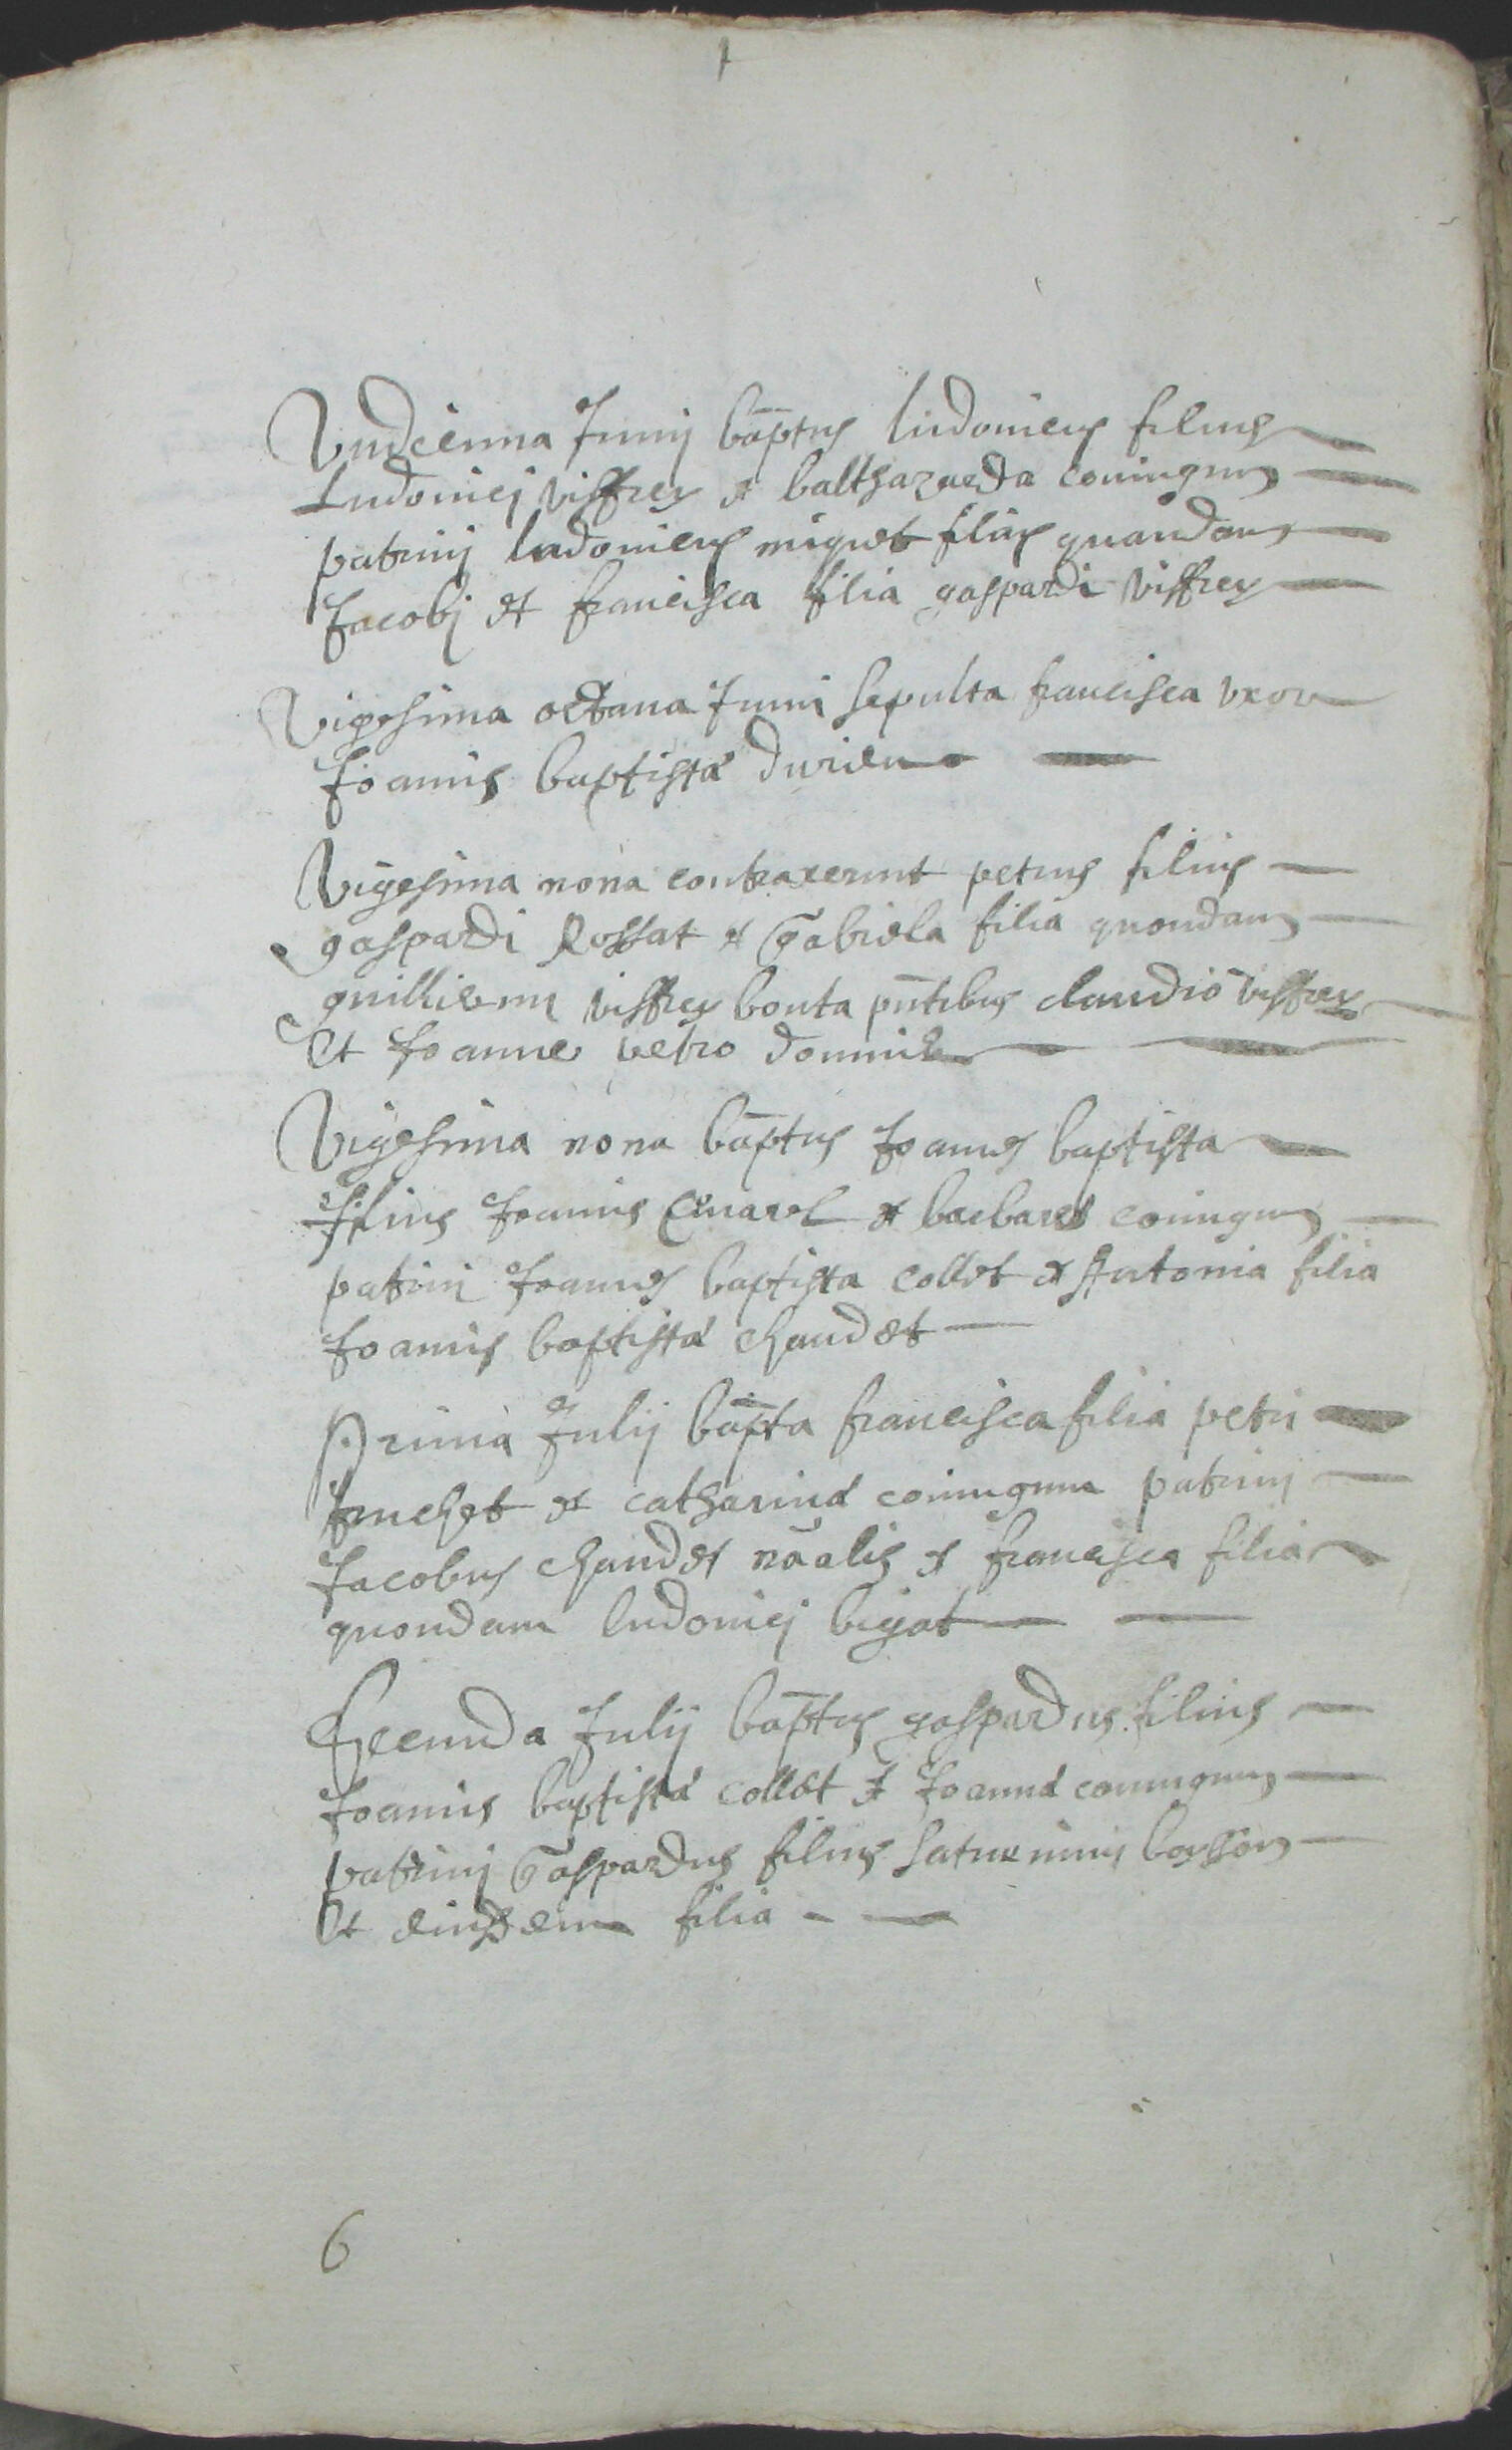 Undecima Junij bāptus ludovicus filius
Ludovicj viffrey et balthazarda coniugum
patrinj ludovicus miquet filius quandam
Jacobj et francisca filia gaspardi viffrey
Vigesima octava Junii sepulta francisca uxor
Joannis baptistæ durieu
Vigesima nona contraxerunt petrus filius
gaspardi Rossat et Gabriela filia quondam
guilliermi viffrey bouta pñtibus claudio viffrey
et Joanne petro
Vigesima nona bāptus Joannes baptista
filius Joannis et barbaræ coniugum
patrini Joannes baptista collet et Antonia filia
Joannis baptistæ chaudet
Prima Julij bāpta francisca filia petri
truchet et catharinæ coniugum patrinj
Jacobus chaudet nāalis et francisca filia
quondam ludovicj bigat
Secunda Julij bāptus gaspardus filius
Joannis baptistæ collet et Joannæ coniugum
patrinj Gaspardus filius saturninij boysson
et eiusdem filia
6